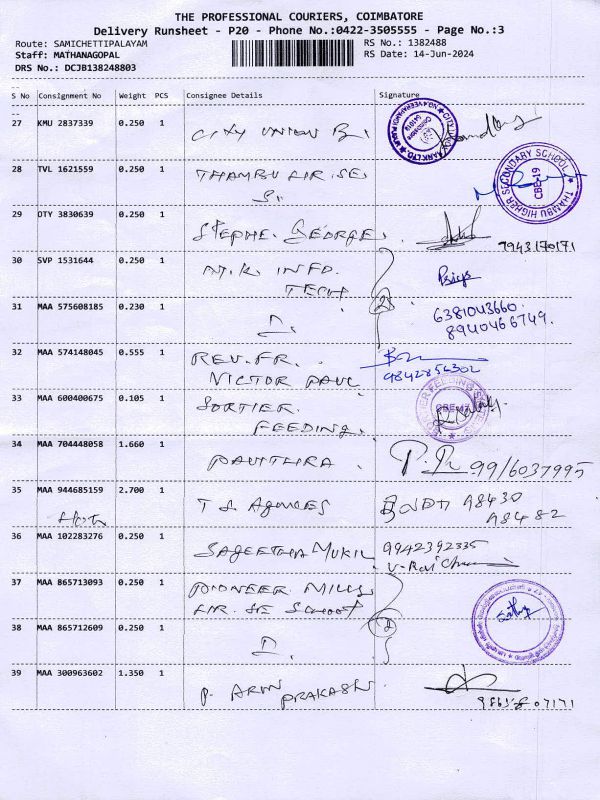 THE PROFESSIONAL COURIERS, COIMBATORE
Delivery Runsheet - P20 - Phone No.:0422-3505555 - Page No.:3
Route: SAMICHETTIPALAYAM
RS No.: 1382488
Staff: MATHANAGOPAL
RS Date: 14-Jun-2024
DRS No.: DCJB138248803
S No Consignment No Weight PCS Consignee Details Signature
27 KMU 2837339 0.250 1 CITY UNION B.
28 TVL 1621559 0.250 1 THAMBU HR.SE.
THAMBU HIGHER SECONDARY SCHOOL
CBE-19
29 OTY 3830639 0.250 1 STEPHE. GEORGE.
9943170171
30 SVP 1531644 0.250 1 M.K. INFO. Priya
TECH
31 MAA 575608185 0.230 1 D. 6381043660
8940466749.
32 MAA 574148045 0.555 1 REV.FR.
VICTOR PAUL 9842856302
33 MAA 600400675 0.105 1
FEEDING.
34 MAA 704448058 1.660 1 PAVITHRA 9916037995
35 MAA 944685159 2.700 1 T S. AGENCIES 98430
98482
36 MAA 102283276 0.250 1 SAGEETHA MUKIL 9942392335
37 MAA 865713093 0.250 1 PIONEER MILLS
HR. SE SCHOOL
38 MAA 865712609 0.250 1 D.
39 MAA 300963602 1.350 1 P. ARUN PRAKASH